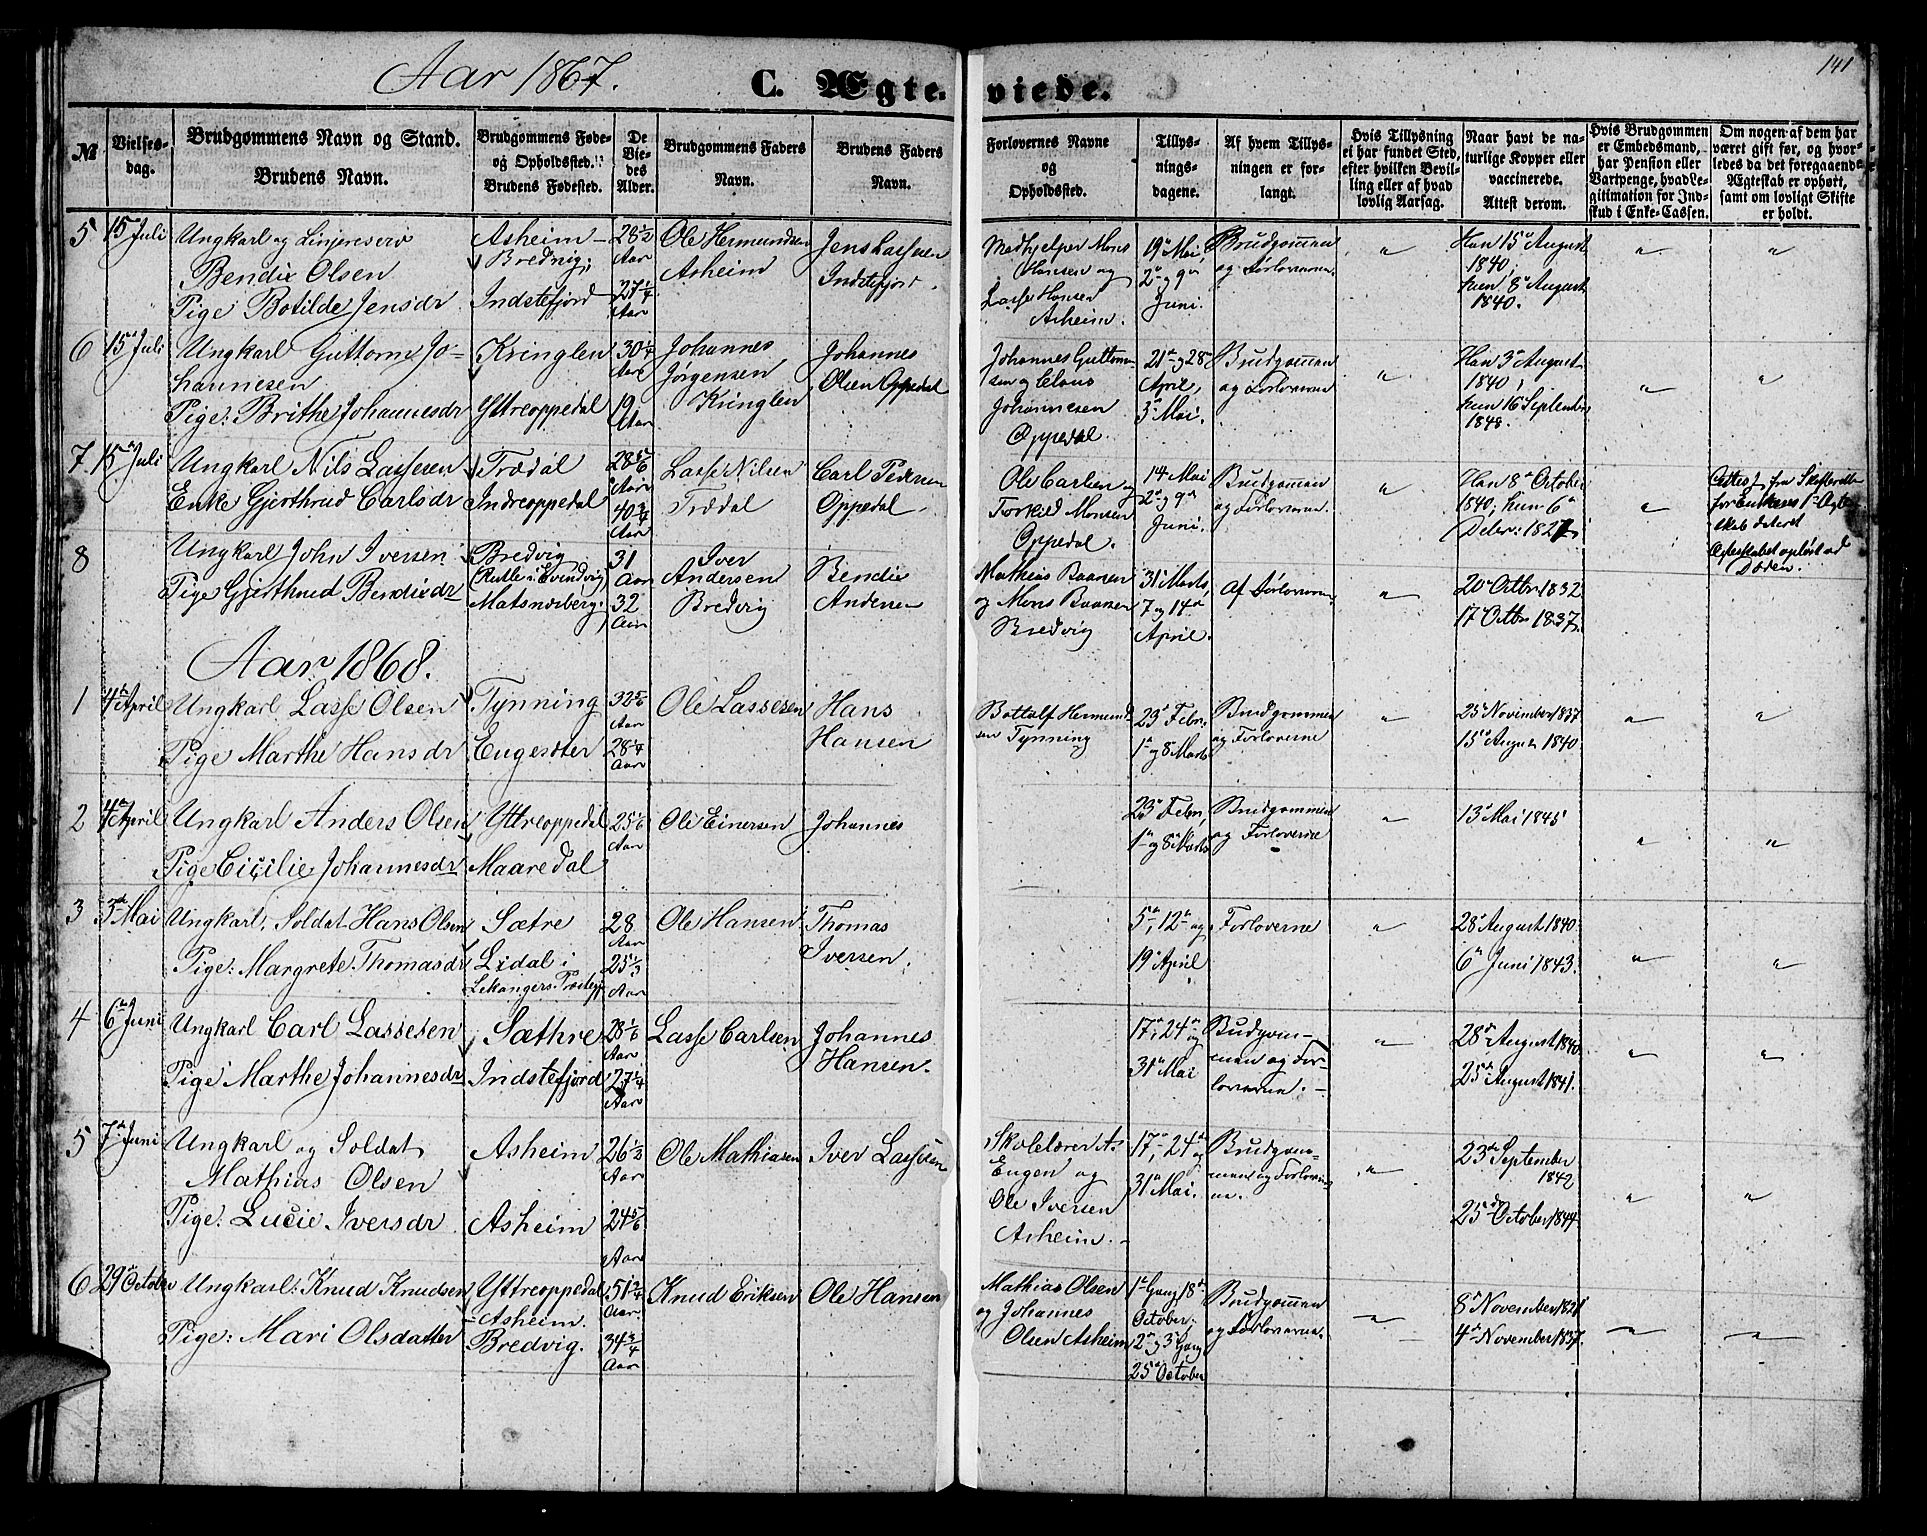 Aar 1867.
C. Ægte-
viede.
141
№
Vielses-
dag.
Brudgommens Navn og Stand.
Brudens Navn.
Brudgommens Føde-
og Opholdssted.
Brudens Fødested.
De
Vie-
des
Alder.
Brudgommens Faders
Navn.
Brudens Faders
Navn.
Forlovernes Navne
og
Opholdssted.
Tillys-
nings-
dagene.
Af hvem Tillys-
ningen er for-
langt.
Hvis Tillysning
ei har fundet Sted,
efter hvilken Bevil-
ling eller af hvad
lovlig Aarsag.
Naar havt de na-
turlige Kopper eller
vaccinerede.
Attest derom.
Hvis Brudgommen
er Embedsmand,
har Pension eller
Vartpenge, hvad Le-
gitimation for Ind-
skud i Enke-Cassen.
Om nogen af dem har
været gift før, og hvor-
ledes da det foregaaende
Ægteskab er ophørt,
samt om lovligt Skifte
er holdt.
5 15 Juli
Ungkarl og
Bendix Olsen
Pige Botilde Jensdr
Asheim
Indstefjord
28½
Aar
27¼
Aar
Ole Hermundsen
Asheim
Jens Lassesen
Indstefjord
Medhjelper Mons
Hansen og
Lasse Hansen
Asheim.
19 Mai,
2 og 9
Juni.
Brudgommen
og Forloverne
"
Han 15 August
1840;
hun 8 August
1840.
"
"
6 15 Juli
Ungkarl Guttorm Jo-
hannesen
Pige: Brithe Johannesdr
Kringlen
Yttreoppedal
30¼
Aar
19
Aar
Johannes
Jørgensen
Kringlen
Johannes
Olsen Oppedal
Johannes Guttorm-
sen og Claus
Johannesen
Oppedal.
21 og 28
April,
3 Mai.
Brudgommen
og Forloverne
"
Han 3 August
1840;
hun 16 September
1848.
"
"
7 15 Juli
Ungkarl Nils Lassesen
Enke Gjerthrud Carlsdr
Trædal
Indreoppedal
28⅚
Aar
40¾
Aar
Lasse Nilsen
Trædal
Carl Pedersen
Oppedal.
Ole Carlsen og
Torkild Monsen
Oppedal.
14 Mai
2 og 9
Juni
Brudgommen
og Forloveren.
"
Han 8 October
1840; hun 6
"
Attest fra Skifteretten
for Enkens 1 Ægte-
skab dateret
Ægteskabet opløst ved
Døden.
8
Ungkarl John Iversen
Pige Gjerthrud Bendixdr
Bredvig
Rutle i Evindvig
31
Aar
32
Aar
Iver
Andersen
Bredvig
Bendix
Andersen
Mathias Baarsen
og Mons Baarsen
Bredvig
31 Marts,
7 og 14
April.
Af Forloveren
"
20 Octbr 1832
17 Octbr 1837.
Aar 1868.
1 4 April
Ungkarl Lasse Olsen
Pige Marthe Hansdr
Tynning
Engesæter
32⅚
Aar
28¼
Aar
Ole Lassesen
Hans
Hansen
Bottolf Hermund-
sen Tynning
23 Febr,
1 og 8 Marts
Brudgommen
og Forloverne
"
25 November 1837
15 August 1840
"
"
2 4 April
Ungkarl Anders Olsen
Pige Cicilie Johannesdr
Yttreoppedal
Maaredal
25⅙
Aar
Ole Einersen
Johannes
23 Febr,
1 og 8 Marts
Brudgommen
og Forloverne
"
13 Mai 1845
"
"
3 3 Mai
Ungkarl, Soldat Hans Olsen
Pige: Margrete Thomasdr
Sætre
Lidal i
Lekangers Præstegj
28
Aar
25⅓
Aar
Ole Hansen
Thomas
Iversen.
5, 12 og
19 April
Forloverne
"
28 August 1840
6 Juni 1843.
"
"
4 6 Juni
Ungkarl Carl Lassesen
Pige Marthe Johannesdr
Sæthre
Indstefjord
28⅙
Aar
27¼
Aar
Lasse Carlsen
Johannes
Hansen.
17, 24 og
31 Mai
Brudgom-
men og For-
loveren.
"
28 August 1840
25 August 1841.
"
"
5 7 Juni
Ungkarl og Soldat
Mathias Olsen
Pige: Lucie Iversdr
Asheim
Asheim
26⅓
Aar
24⅚
Aar
Ole Mathiasen
Iver Lassesen
Skolelærer A.
Engen og
Ole Iversen
Asheim.
17, 24 og
31 Mai.
Brudgom-
men og Forlover-
ne.
"
23 September
1842
25 October 1844
"
"
6 29 October
Ungkarl: Knud Knudsen
Pige: Mari Olsdatter
Yttreoppedal
Asheim.
Bredvig.
51¾
Aar
34¾
Aar
Knud Eriksen
Ole Hansen
Mathias Olsen
og Johannes
Olsen Asheim
1 Gang 18
October;
2 og 3 Gang
25 October
Brudgommen
og Forloveren.
"
8 November 1821
4 November 1837.
"
"